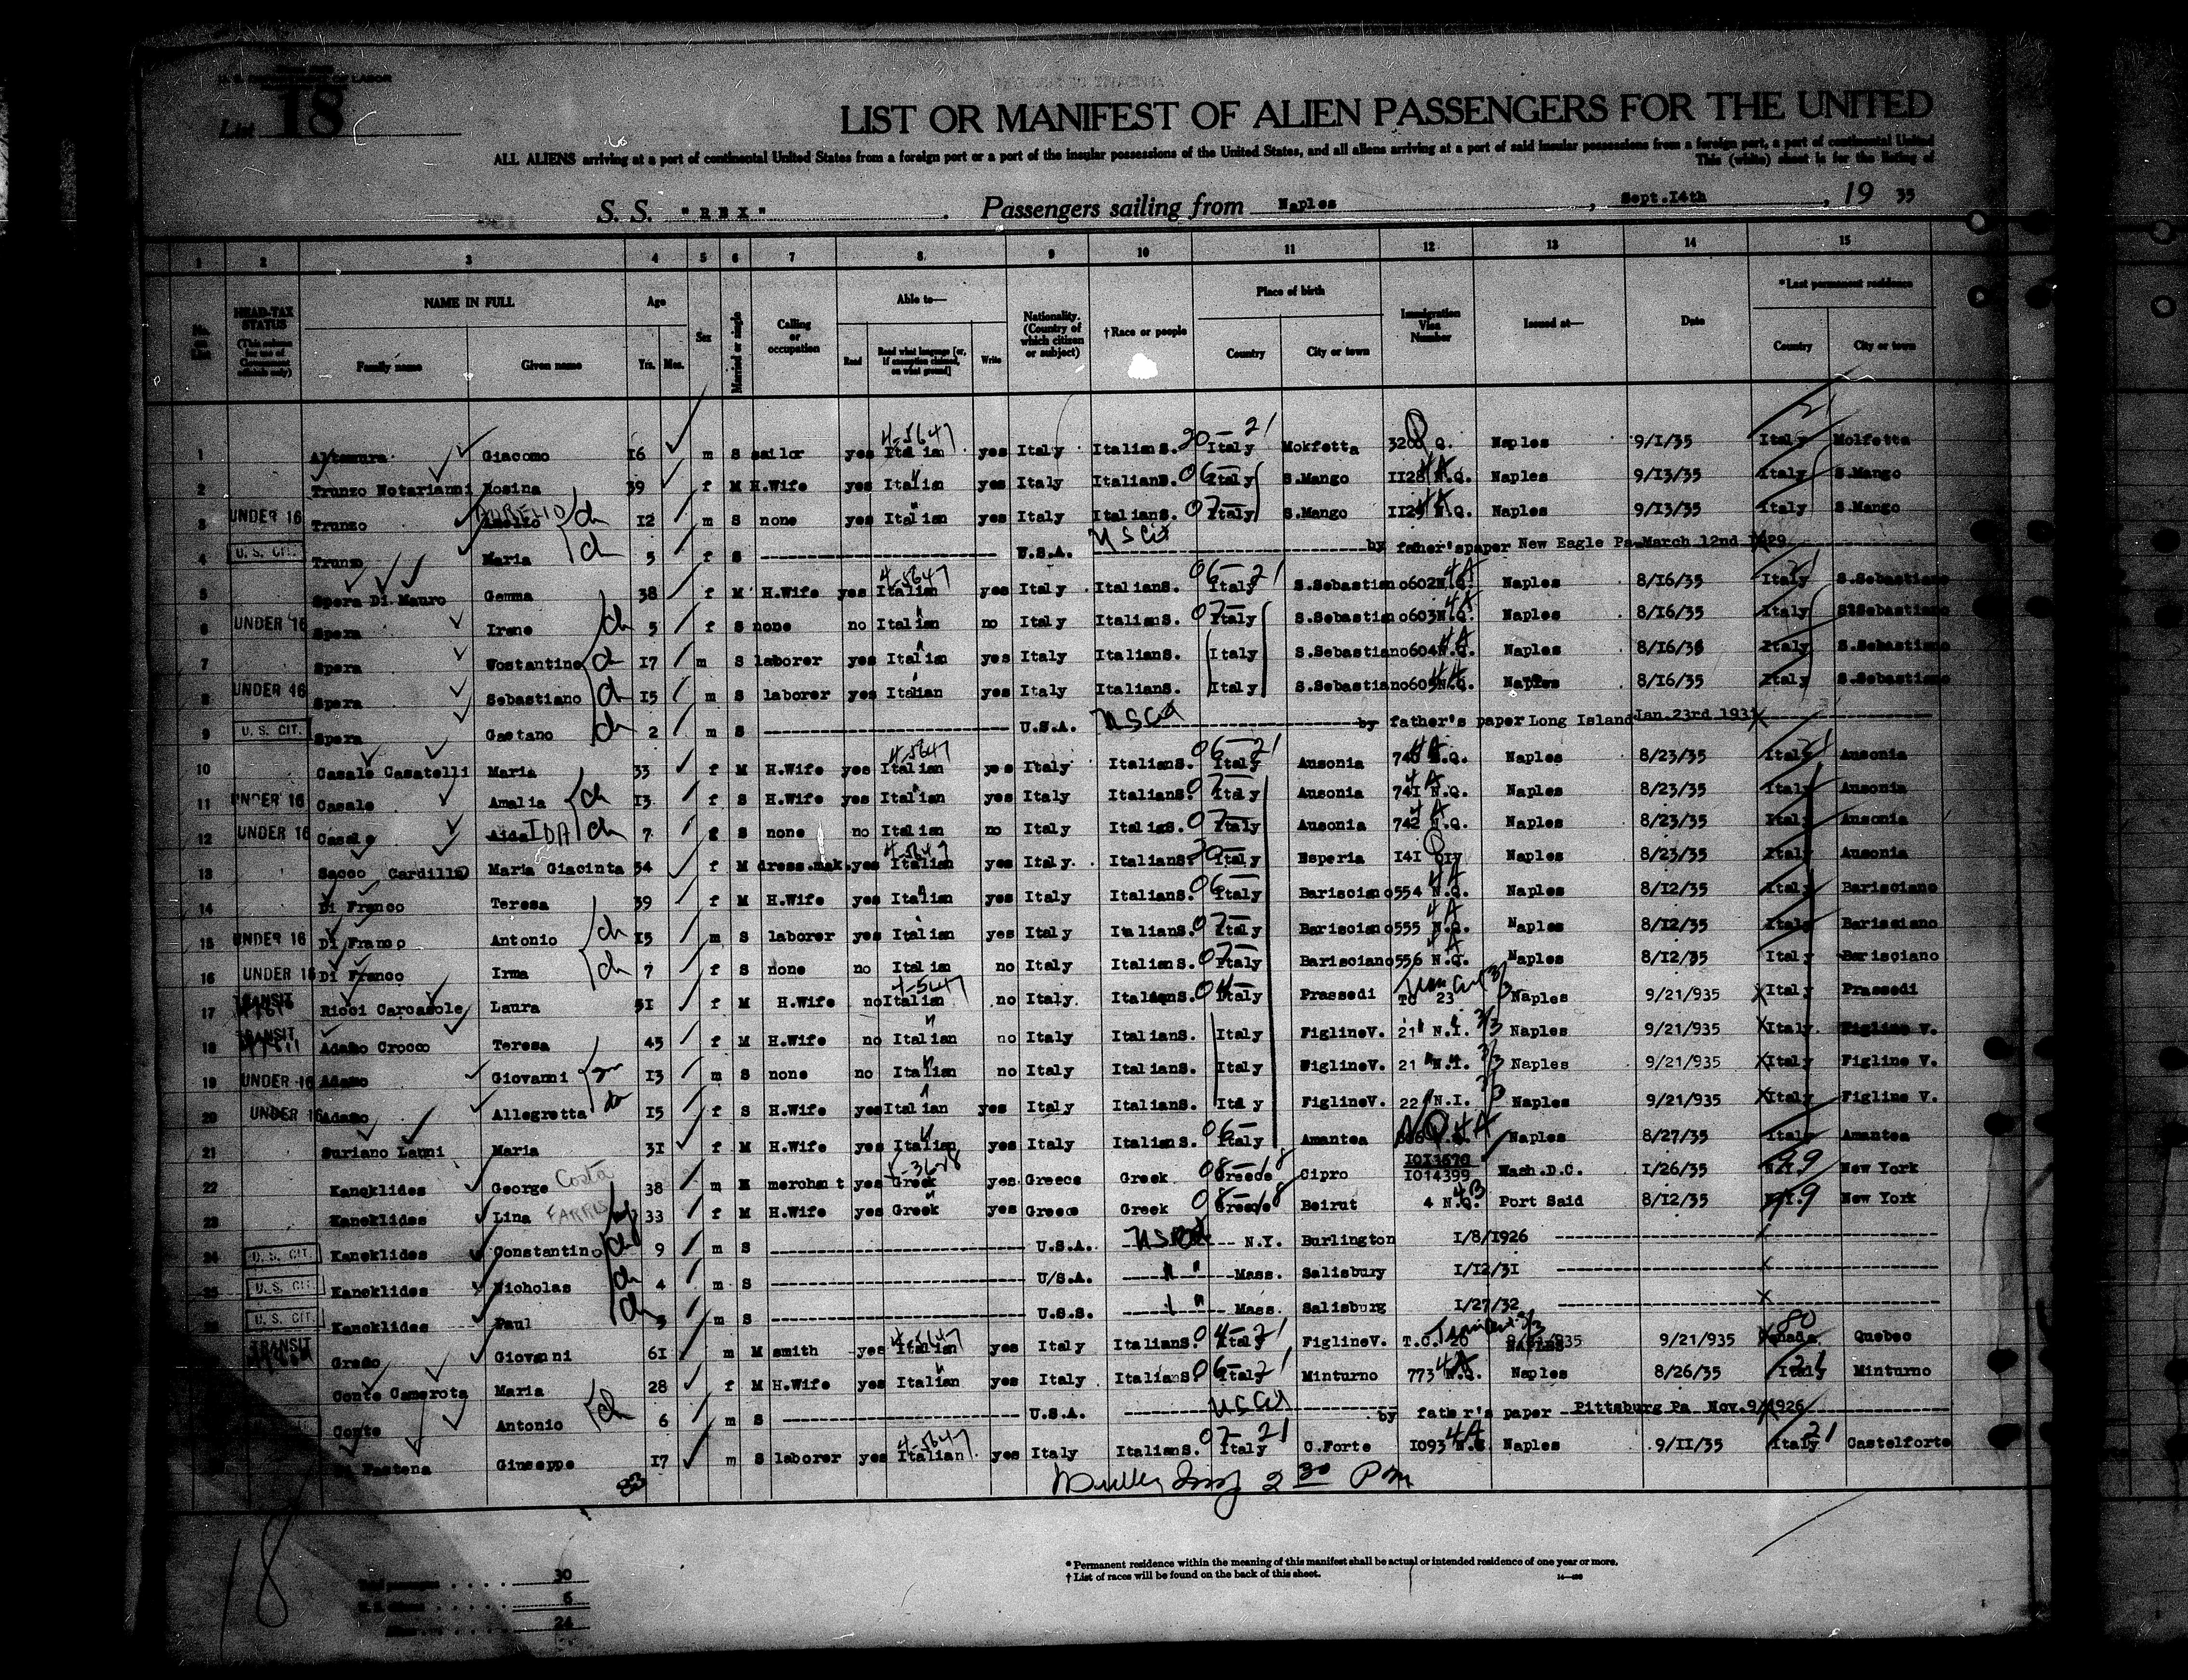 U. S. DEPARTMENT OF LABOR
List 18
LIST OR MANIFEST OF ALIEN PASSENGERS FOR THE UNITED
ALL ALIENS arriving at a port of continental United States from a foreign port or a port of the insular possessions of the United States, and all aliens arriving at a port of said insular possessions from a foreign port, a part of continental United
This (white) sheet is for the listing of
S. S. "REX" Passengers sailing from Naples, Sept.14th, 19 35
1 2 3 4 5 6 7 8 9 10 11 12 13 14 15
No. on List HEAD-TAX STATUS (This column for use of Government officials only) NAME IN FULL Age Sex Married or single Calling or occupation Able to— Nationality. (Country of which citizen or subject) †Race or people Place of birth Immigration Visa Number Issued at— Date *Last permanent residence
Family name Given name Yrs. Mos. Read Read what language [or, if exemption claimed, on what ground] Write Country City or town Country City or town
1 Altamura Giacomo 16 m S sailor yes Italian yes Italy ItalianS. Italy Mokfetta Naples 9/1/35 Italy Molfetta
2 Trunzo Notarianni Rosina 39 f M H.Wife yes Italian yes Italy ItalianS. Italy S.Mango 1128 N.Q. Naples 9/13/35 Italy S.Mango
3 UNDER 16 Trunzo AURELIO ch 12 m S none yes Italian yes Italy ItalianS. Italy S.Mango 1129 N.Q. Naples 9/13/35 Italy S.Mango
4 U. S. CIT. Trunzo Maria ch 5 f S U.S.A. US Cit by father'spaper New Eagle Pa March 12nd 1929
5 Spera Di Mauro Gemma 38 f M H.Wife yes Italian yes Italy ItalianS. Italy S.Sebastiano 602 N.Q. Naples 8/16/35 Italy S.Sebastiano
6 UNDER 16 Spera Irene ch 5 f S none no Italian no Italy ItalianS. Italy S.Sebastiano 603 N.Q. Naples 8/16/35 Italy S.Sebastiano
7 Spera Wostantino ch 17 m S laborer yes Italian yes Italy ItalianS. Italy S.Sebastiano 604 N.Q. Naples 8/16/35 Italy S.Sebastiano
8 UNDER 16 Spera Sebastiano ch 15 m S laborer yes Italian yes Italy ItalianS. Italy S.Sebastiano 605 N.Q. Naples 8/16/35 Italy S.Sebastiano
9 U. S. CIT. Spera Gaetano ch 2 m S U.S.A. US Cit by father's paper Long Island Jan.23rd 1931
10 Casale Casatelli Maria 33 f M H.Wife yes Italian yes Italy ItalianS. Italy Ausonia 740 N.Q. Naples 8/23/35 Italy Ausonia
11 UNDER 16 Casale Amalia ch 13 f S H.Wife yes Italian yes Italy ItalianS. Italy Ausonia 741 N.Q. Naples 8/23/35 Italy Ausonia
12 UNDER 16 Casale Aida IDA ch 7 f S none no Italian no Italy ItaliaS. Italy Ausonia 742 N.Q. Naples 8/23/35 Italy Ausonia
13 Sacco Cardillo Maria Giacinta 54 f M dress.mak. yes Italian yes Italy. ItalianS. Italy Esperia 141 Naples 8/23/35 Italy Ausonia
14 Di Franco Teresa 39 f M H.Wife yes Italian yes Italy ItalianS. Italy Barisciano 554 N.Q. Naples 8/12/35 Italy Barisciano
15 UNDER 16 Di Franco Antonio ch 15 m S laborer yes Italian yes Italy ItalianS. Italy Barisciano 555 N.Q. Naples 8/12/35 Italy Barisciano
16 UNDER 16 Di Franco Irma ch 7 f S none no Italian no Italy ItalianS. Italy Barisciano 556 N.Q. Naples 8/12/35 Italy Barisciano
17 TRANSIT Ricci Carcasole Laura 31 f M H.Wife no Italian no Italy. ItalianS. Italy Prassedi TC 23 Naples 9/21/935 Italy Prassedi
18 TRANSIT Adamo Crocco Teresa 45 f M H.Wife no Italian no Italy ItalianS. Italy FiglineV. 21 N.I. Naples 9/21/935 Italy Figline V.
19 UNDER 16 Adamo Giovanni 13 m S none no Italian no Italy ItalianS. Italy FiglineV. 21 N.I. Naples 9/21/935 Italy Figline V.
20 UNDER 16 Adamo Allegretta 15 f S H.Wife yes Italian yes Italy ItalianS. Italy FiglineV. 22 N.I. Naples 9/21/935 Italy Figline V.
21 Suriano Lanni Maria 31 f M H.Wife yes Italian yes Italy ItalianS. Italy Amantea Naples 8/27/35 Italy Amantea
22 Kanoklides George Costa 38 m M merchant yes Greek yes Greece Greek Greece Cipro 1013670 1014399 Wash.D.C. 1/26/35 N.Y. New York
23 Kanoklides Lina 33 f M H.Wife yes Greek yes Greece Greek Greece Beirut 4 N.Q. Port Said 8/12/35 N.Y. New York
24 U. S. CIT. Kanoklides Constantino ch 9 m S U.S.A. N.Y. Burlington 1/8/1926
25 U. S. CIT. Kanoklides Nicholas ch 4 m S U/S.A. Mass. Salisbury 1/12/31
26 U. S. CIT. Kanoklides Paul ch 3 m S U.S.S. Mass. Salisburg 1/27/32
TRANSIT Greco Giovanni 61 m M smith yes Italian yes Italy ItalianS. Italy FiglineV. T.C. 20 NAPLES 9/21/935 Canada Quebec
Conte Camerota Maria 28 f M H.Wife yes Italian yes Italy ItalianS. Italy Minturno 773 N.Q. Naples 8/26/35 Italy Minturno
Conte Antonio ch 6 m S U.S.A. US Cit by father's paper Pittsburg Pa Nov.9/1926
Di Pastena Giuseppe 17 m S laborer yes Italian yes Italy ItalianS. Italy C.Forte 1093 N.Q. Naples 9/11/35 Italy Castelforte
83 2 30 Pm
18
Total passengers 30
U. S. citizens 6
Aliens 24
* Permanent residence within the meaning of this manifest shall be actual or intended residence of one year or more.
† List of races will be found on the back of this sheet.